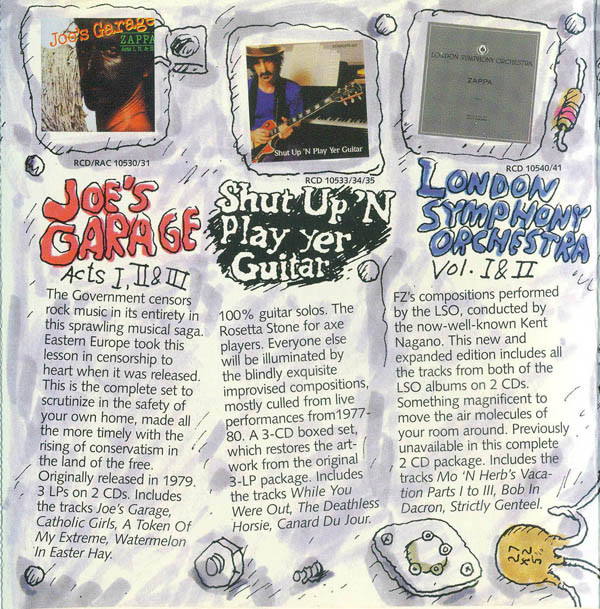 Joe's Garage
ZAPPA
Acts I, II & III
RCD/RAC 10530/31
JOE'S
GARAGE
Acts I, II & III
The Government censors
rock music in its entirety in
this sprawling musical saga.
Eastern Europe took this
lesson in censorship to
heart when it was released.
This is the complete set to
scrutinize in the safety of
your own home, made all
the more timely with the
rising of conservatism in
the land of the free.
Originally released in 1979.
3 LPs on 2 CDs. Includes
the tracks Joe's Garage,
Catholic Girls, A Token Of
My Extreme, Watermelon
In Easter Hay.
Shut Up 'N Play Yer Guitar
RCD 10533/34/35
Shut Up 'N
Play yer
Guitar
100% guitar solos. The
Rosetta Stone for axe
players. Everyone else
will be illuminated by
the blindly exquisite
improvised compositions,
mostly culled from live
performances from1977-
80. A 3-CD boxed set,
which restores the art-
work from the original
3-LP package. Includes
the tracks While You
Were Out, The Deathless
Horsie, Canard Du Jour.
LONDON SYMPHONY ORCHESTRA
ZAPPA
RCD 10540/41
LONDON
SYMPHONY
ORCHESTRA
Vol. I & II
FZ's compositions performed
by the LSO, conducted by
the now-well-known Kent
Nagano. This new and
expanded edition includes all
the tracks from both of the
LSO albums on 2 CDs.
Something magnificent to
move the air molecules of
your room around. Previously
unavailable in this complete
2 CD package. Includes the
tracks Mo 'N Herb's Vaca-
tion Parts I to III, Bob In
Dacron, Strictly Genteel.